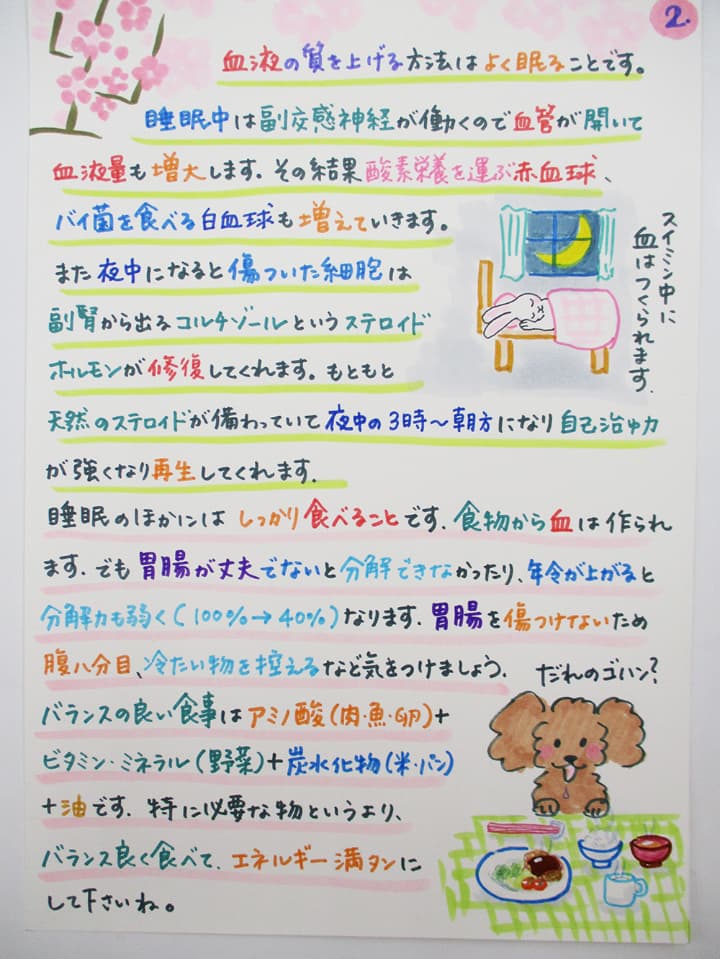 2.
血液の質を上げる方法はよく眠ることです。
睡眠中は副交感神経が働くので血管が開いて
血液量も増大します.その結果酸素栄養を運ぶ赤血球、
バイ菌を食べる白血球も増えていきます。
また夜中になると傷ついた細胞は
副腎から出るコルチゾールというステロイド
ホルモンが修復してくれます.もともと
天然のステロイドが備わっていて夜中の3時〜朝方になり自己治ゆ力
が強くなり再生してくれます.
スイミン中に
血はつくられます.
睡眠のほかにはしっかり食べることです.食物から血は作られ
ます.でも胃腸が丈夫でないと分解できなかったり、年令が上がると
分解力も弱く(100%→40%)なります.胃腸を傷つけてないため
腹八分目、冷たい物を控えるなど気をつけましょう.
だれのゴハン?
バランスの良い食事はアミノ酸(肉・魚・卵)+
ビタミン・ミネラル(野菜)+炭水化物(米・パン)
+油です.特に必要な物というより、
バランス良く食べて、エネルギー満タンに
して下さいね。